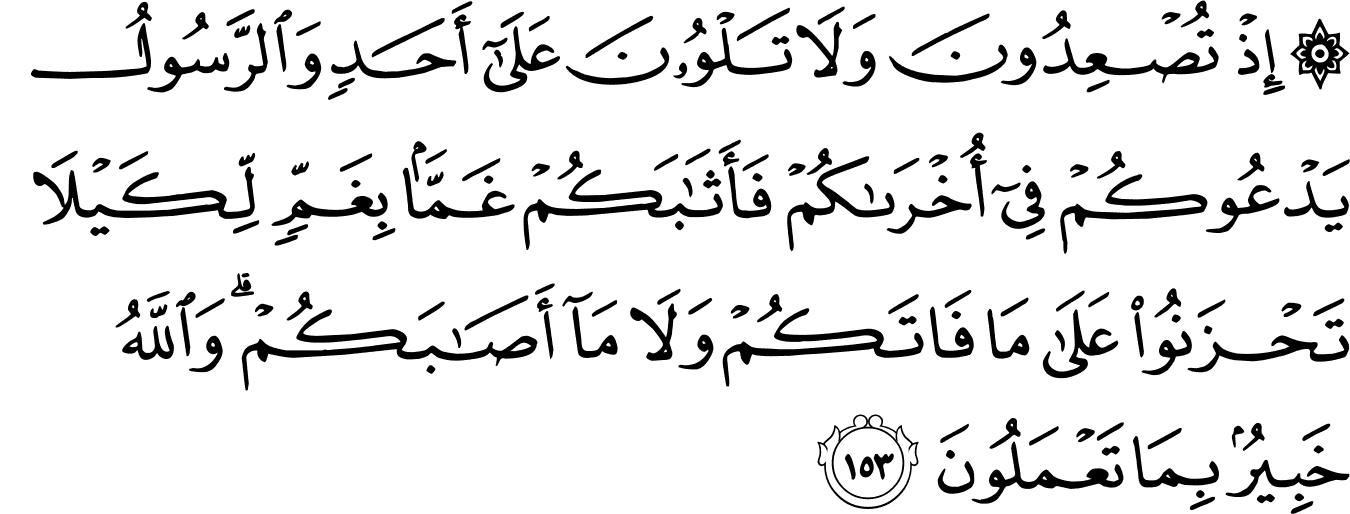 ۞ إِذْ تُصْعِدُونَ وَلَا تَلْوُۥنَ عَلَىٰٓ أَحَدٍ وَٱلرَّسُولُ
يَدْعُوكُمْ فِىٓ أُخْرَىٰكُمْ فَأَثَٰبَكُمْ غَمًّۢا بِغَمٍّ لِّكَيْلَا
تَحْزَنُوا۟ عَلَىٰ مَا فَاتَكُمْ وَلَا مَآ أَصَٰبَكُمْ ۗ وَٱللَّهُ
خَبِيرٌۢ بِمَا تَعْمَلُونَ ١٥٣